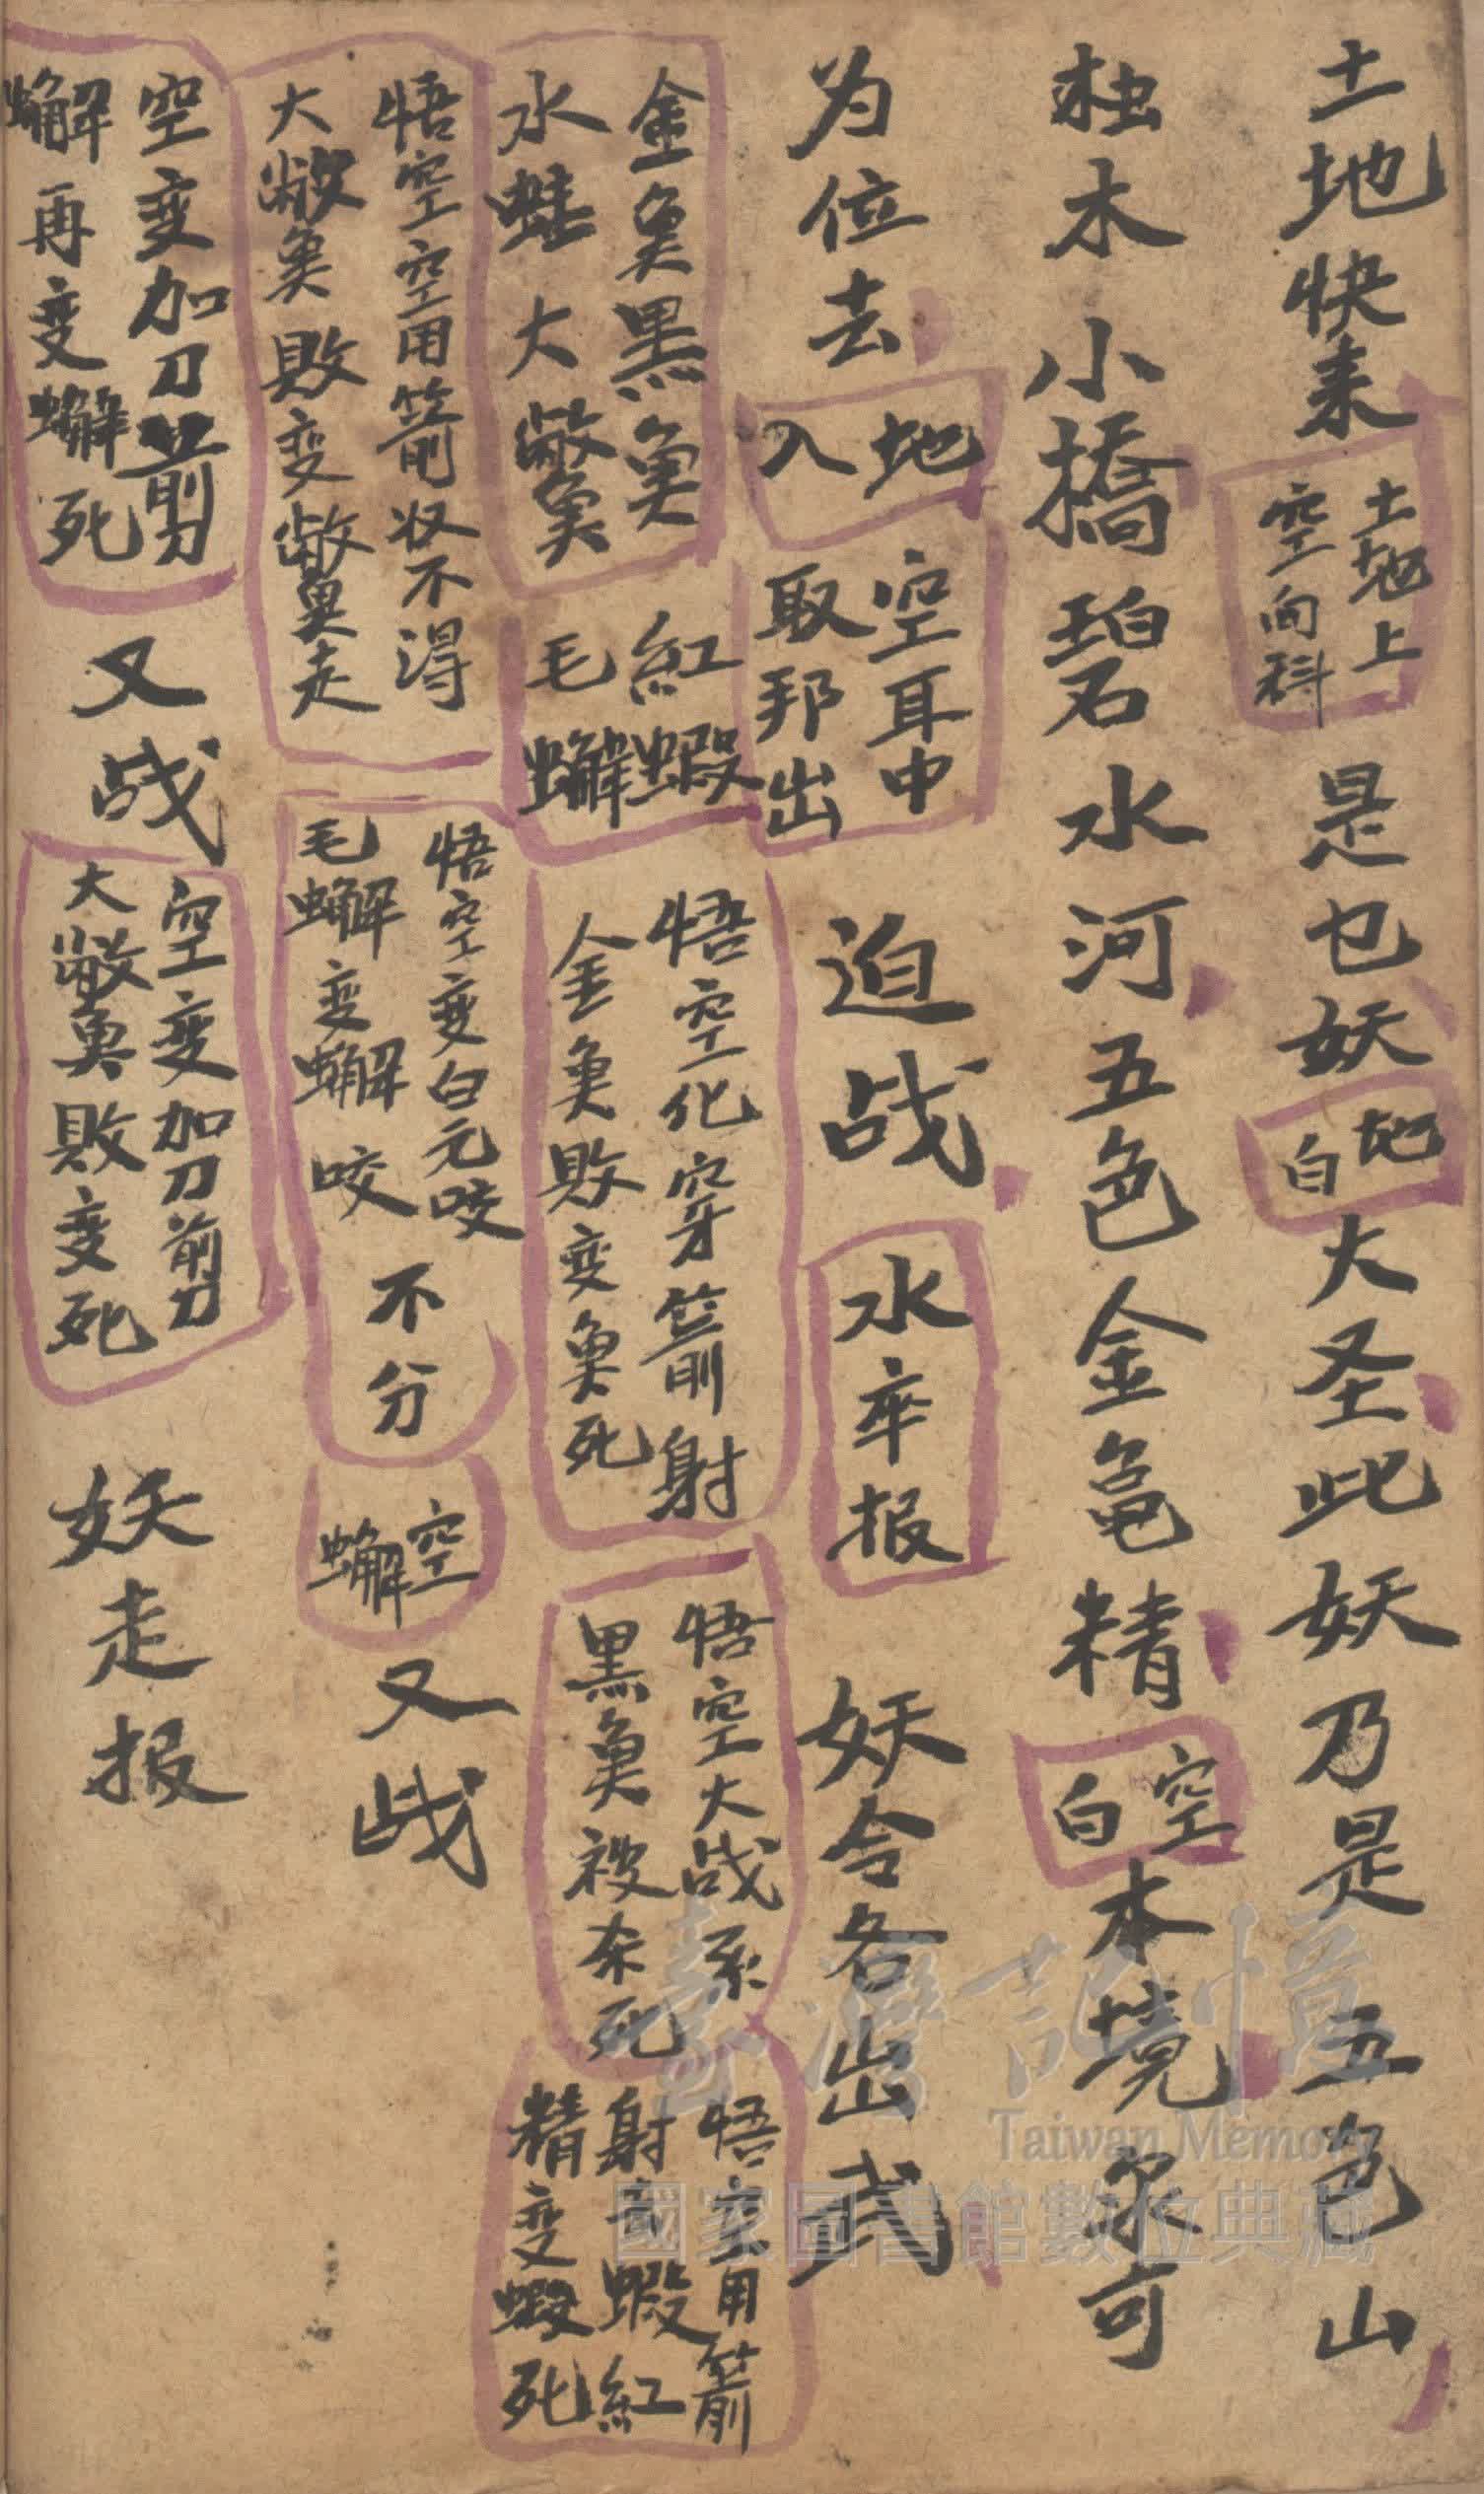 土地快来
土地上
空向科
是乜妖
地
白
大圣此妖乃是五色山
独木小橋碧水河五色金黾精
空
白
本境泉可
为位去
地
入
空耳中
取邦出
迫战
水卒报
妖令各出武
金魚黑魚
水蛙大鱉魚
紅蝦
毛蠏
悟空化穿箭射
金魚敗变魚死
悟空大战系
黑魚被杀死
悟空用箭
射 蝦紅
精变蝦死
悟空空用箭收不得
大鱉魚敗变鱉魚走
悟空变白元咬
毛蠏变蠏咬
不分
空
蠏
又战
空变加刀剪
蠏再变蠏死
又战
空变加刀剪
大鱉魚敗变死
妖走报
臺灣記憶
Taiwan Memory
國家圖書館數位典藏